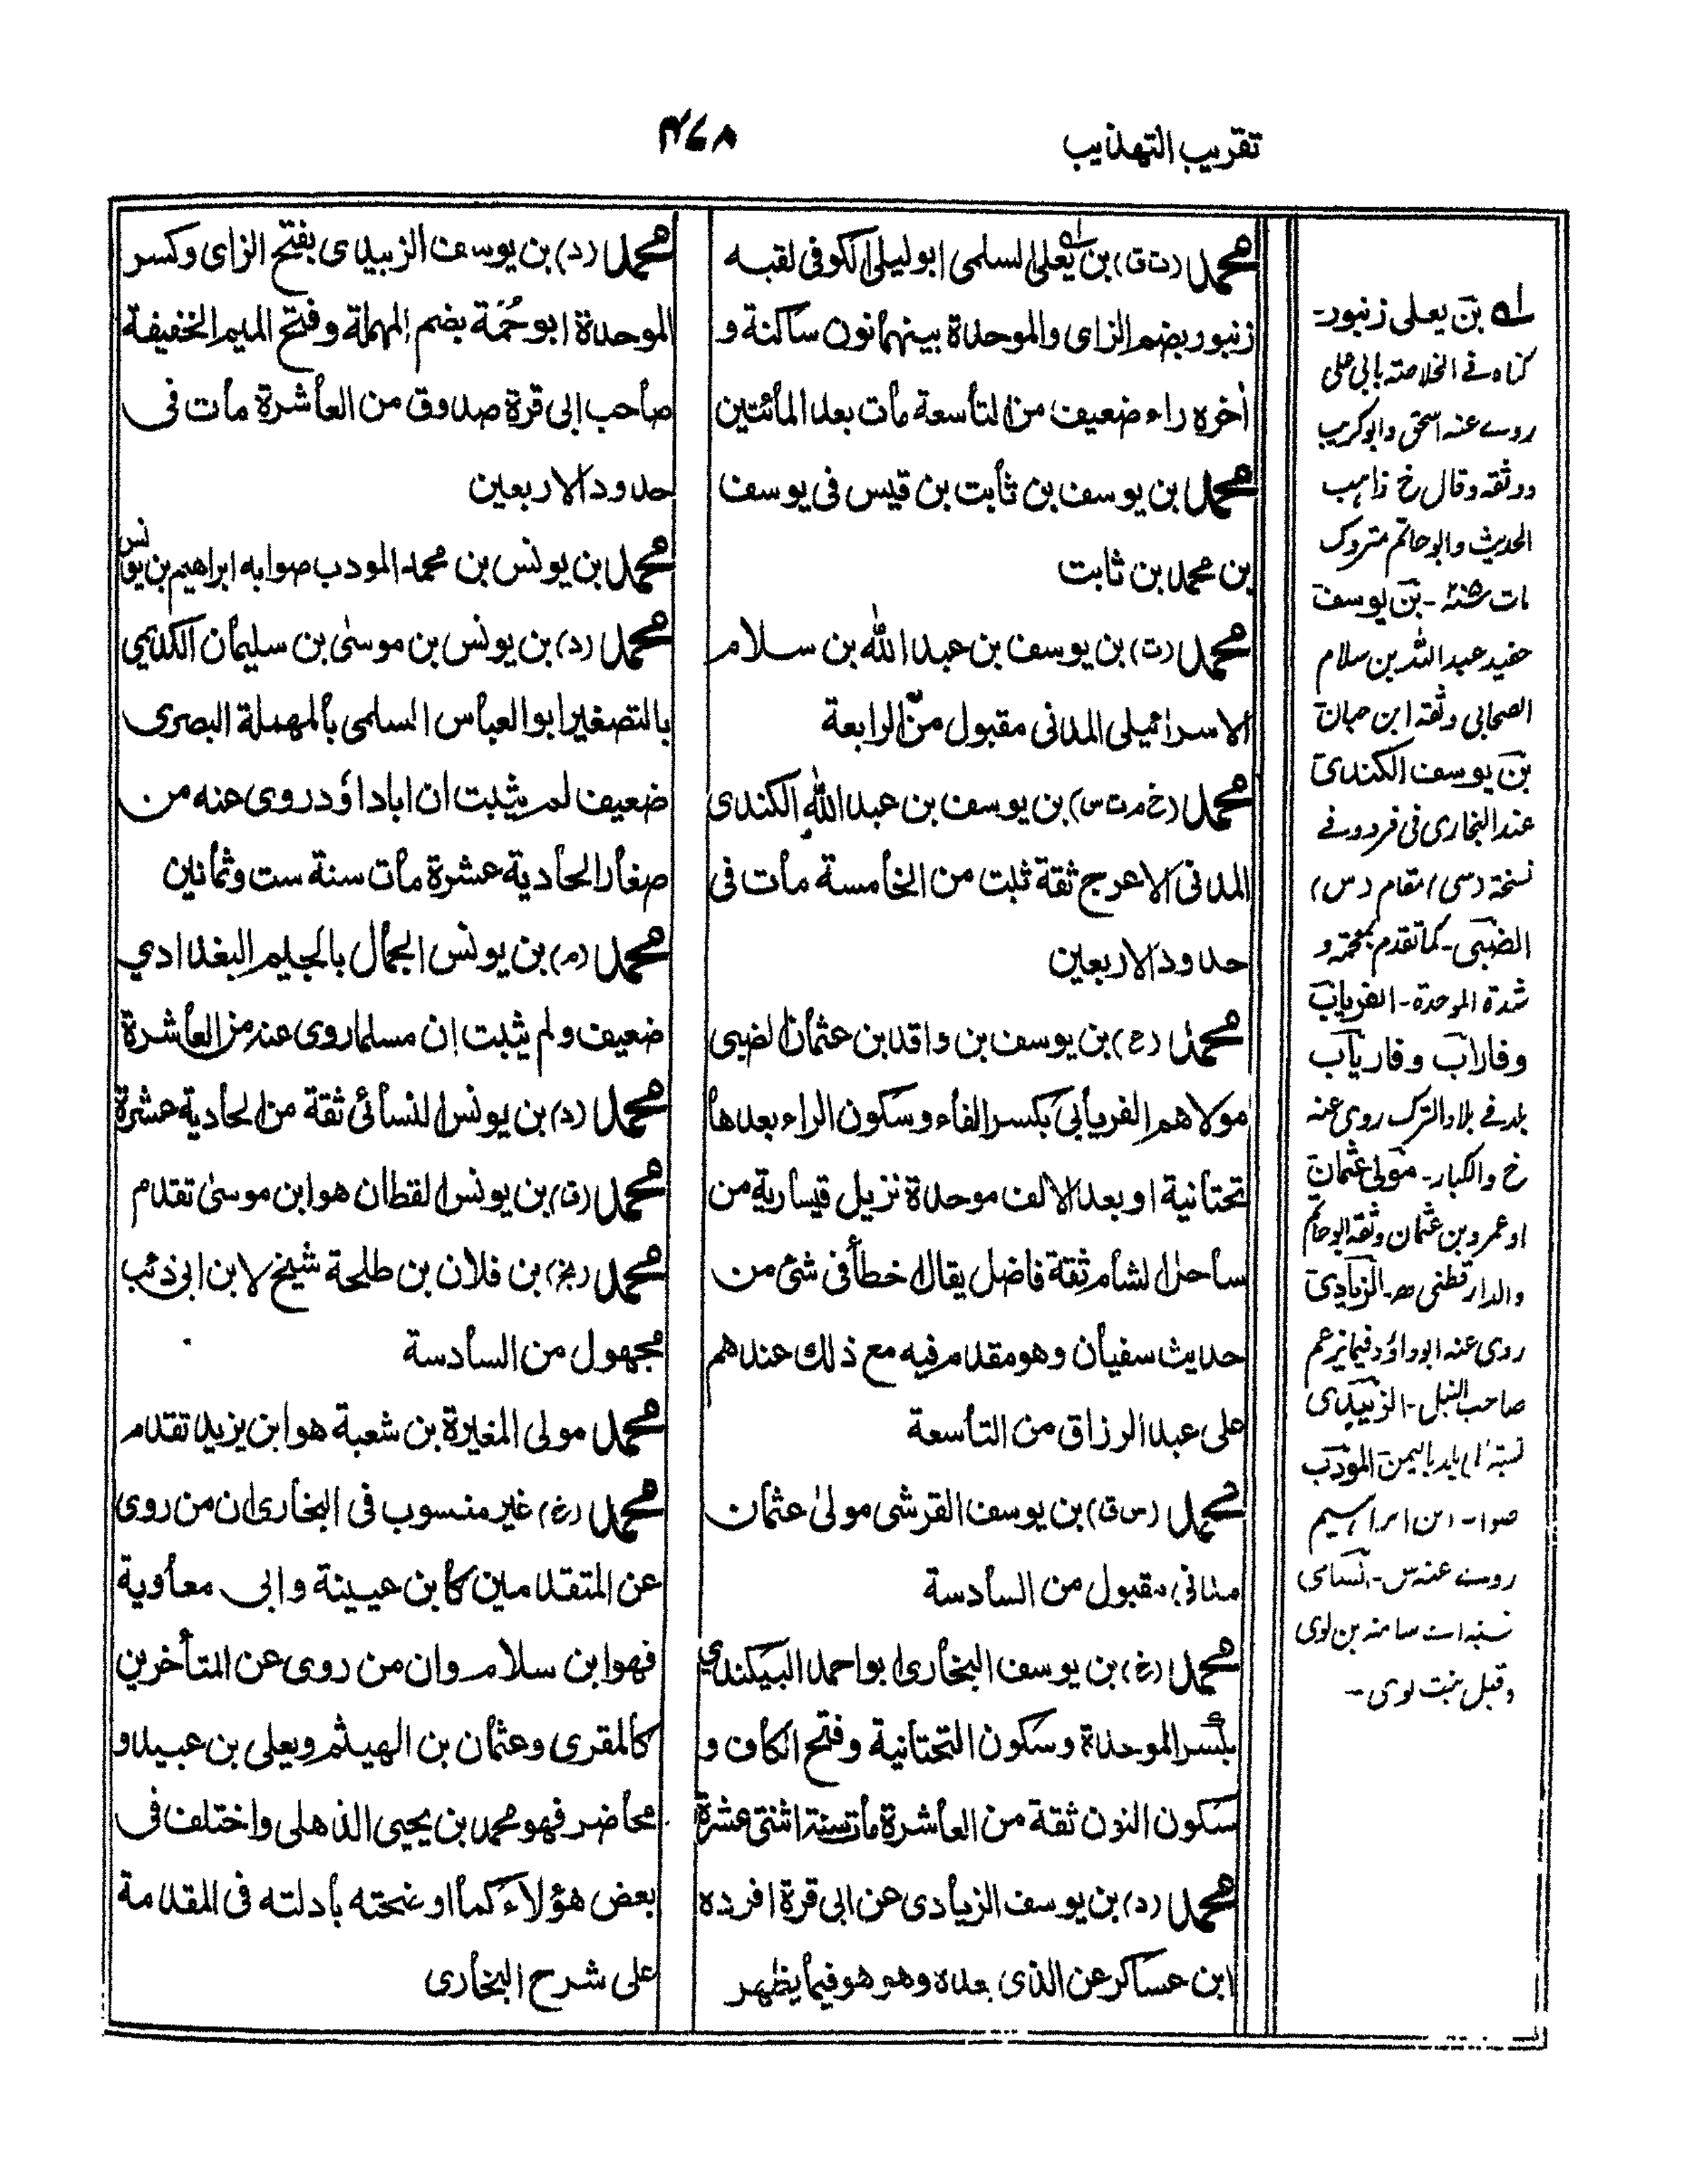 تقريب التهذيب
۴۷۸
محمد (ت ق) بن يعلى السلمى ابو ليلى الكوفى لقبه
زنبور بضم الزاى والموحدة بينهما نون ساكنة و
أخره راء ضعيف من التاسعة مات بعد المائتين
محمد بن يوسف بن ثابت بن قيس فى يوسف
بن محمد بن ثابت
محمد (ت) بن يوسف بن عبد الله بن سلام
الاسرائيلى المدنى مقبول من الرابعة
محمد (خ م ت س) بن يوسف بن عبد الله الكندى
المدنى الاعرج ثقة ثبت من الخامسة مات فى
حدود الاربعين
محمد (ع) بن يوسف بن واقد بن عثمان الضبى
مولاهم الفريابى بكسر الفاء وسكون الراء بعدها
تحتانية او بعد الالف موحدة نزيل قيسارية من
ساحل الشام ثقة فاضل يقال اخطأ فى شئ من
حديث سفيان وهو مقدم فيه مع ذلك عندهم
على عبد الرزاق من التاسعة
محمد (س ق) بن يوسف القرشى مولى عثمان
مدنى مقبول من السادسة
محمد (خ) بن يوسف البخارى ابو احمد البيكندي
بكسر الموحدة وسكون التحتانية وفتح الكاف و
سكون النون ثقة من العاشرة مات سنة اثنتى عشرة
محمد (د) بن يوسف الزيادى عن ابى قرة افرده
ابن عساكر عن الذى بعده وهو هو فيما يظهر
محمد (د) بن يوسف الزبيدى بفتح الزاى وكسر
الموحدة ابو حُمَة بضم المهملة وفتح الميم الخفيفة
صاحب ابى قرة صدوق من العاشرة مات فى
حدود الاربعين
محمد بن يونس بن محمد المودب صوابه ابراهيم بن يونس
محمد (د) بن يونس بن موسى بن سليمان الكديمي
بالتصغير ابو العباس السلمى بالمهملة البصرى
ضعيف لم يثبت ان ابا داؤد روى عنه من
صغار الحادية عشرة مات سنة ست وثمانين
محمد (م) بن يونس الجمال بالجيم البغدادي
ضعيف ولم يثبت ان مسلما روى عنه من العاشرة
محمد (د) بن يونس النسائى ثقة من الحادية عشرة
محمد (ق) بن يونس القطان هو ابن موسى تقدم
محمد (بخ) بن فلان بن طلحة شيخ لابن ابى ذئب
مجهول من السادسة
محمد مولى المغيرة بن شعبة هو ابن يزيد تقدم
محمد (خ) غير منسوب فى البخارى ان من روى
عن المتقدمين كابن عيينة وابى معاوية
فهو ابن سلام وان من روى عن المتأخرين
كالمقرى وعثمان بن الهيثم ويعلى بن عبيد و
محاضر فهو محمد بن يحيى الذهلى واختلف فى
بعض هؤلاء كما اوضحته بأدلته فى المقدمة
على شرح البخارى
له بن يعلى زنبور-
كناه فے الخلاصة بابى على
روے عنه اسحٰق وابو كريب
ووثقه وقال خ ذاهب
الحديث وابو حاتم متروك
مات - بن يوسف
حفيد عبد الله بن سلام
الصحابى وثقه ابن حبان
بن يوسف الكندى
عند البخارى فى فرد وفے
نسخة (سى) مقام (س)
الضبى - كما تقدم بمعجمة و
شدة الموحدة - الفريابى
وفاراب وفارياب
بلد فے بلاد الترك روى عنه
خ والكبار - مولى عثمان
او عمرو بن عثمان وثقه ابو حاتم
والدارقطنى - الزيادى
روى عنه ابو داؤد فيما يزعم
صاحب النبل - الزبيدى
نسبة الى بلد باليمن المؤدب
ابن ابراهيم
روے عنه س - نسائى
بن لوى
وقيل بنت لوى -